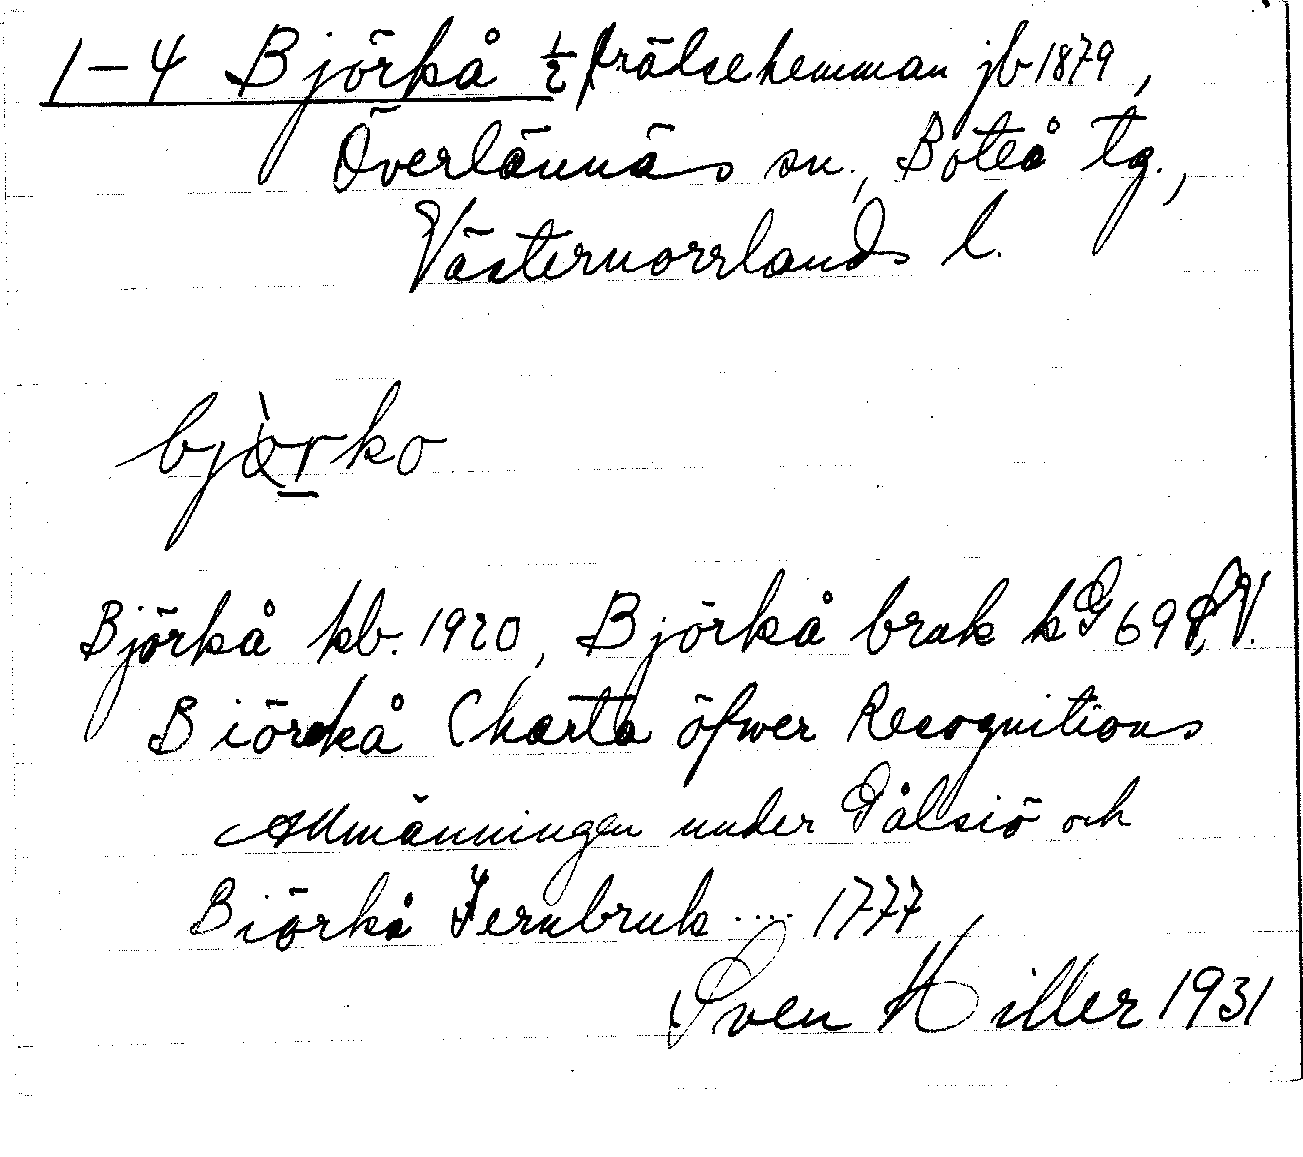 1–4 Björkå ½ frälsehemman jb 1879,
Överlännäs sn., Boteå tg.,
Västernorrlands l.
bjòrko
Björkå kb. 1920, Björkå bruk kG 69 S.V.
Biörckå Charta öfwer Recognitions
Allmänningen under Gålsiö och
Biörkå Jernbruk .... 1777
Sven Hiller 1931